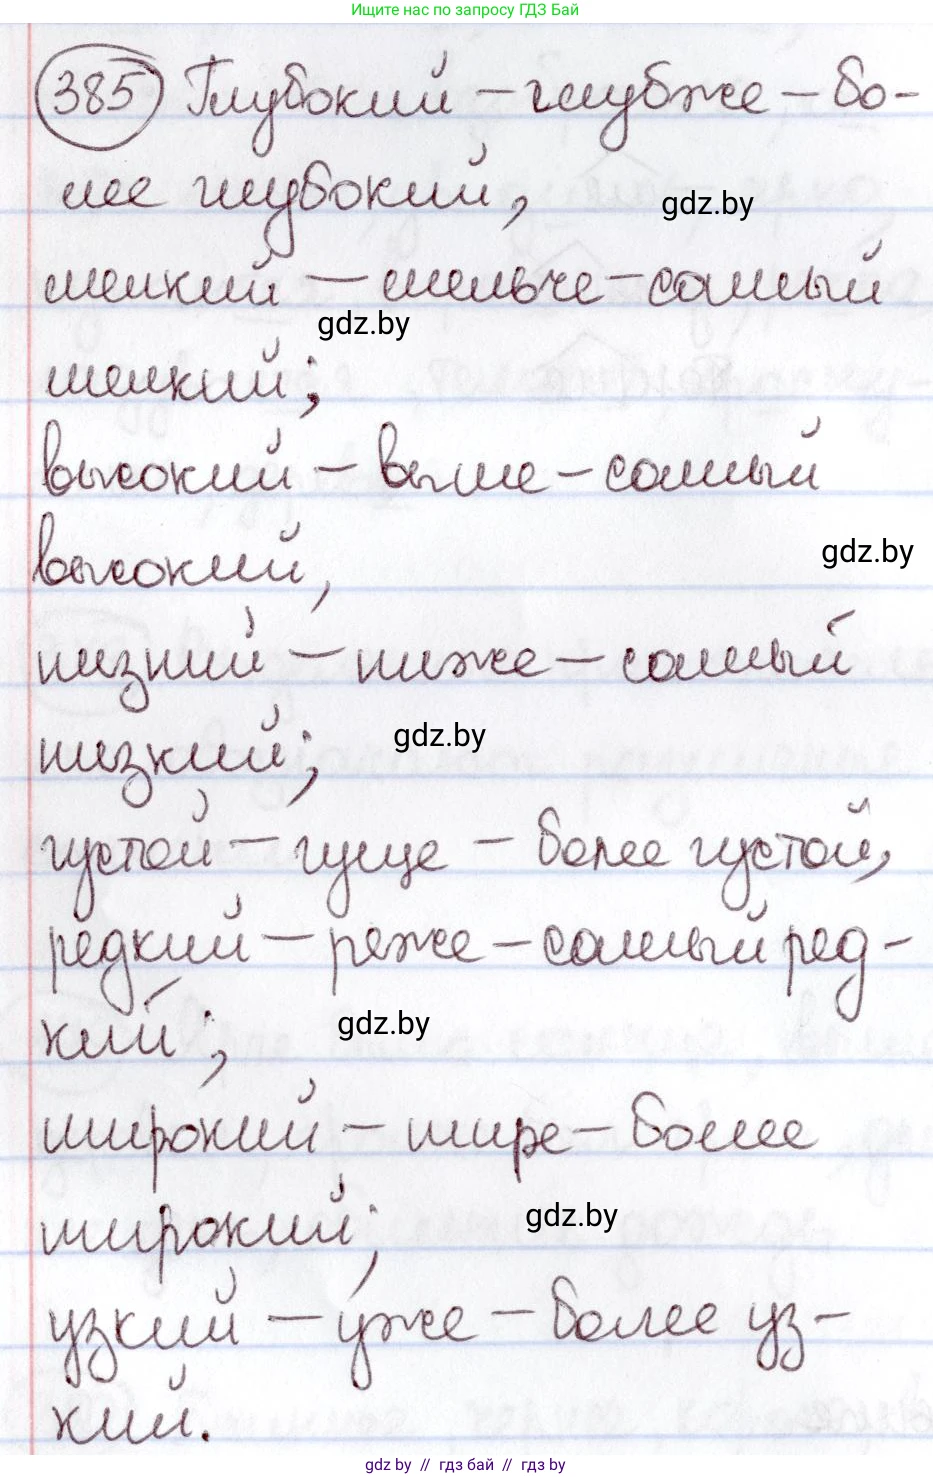 Ищите нас по запросу ГДЗ Бай
385 Глубокий – глубже – бо-
лее глубокий,
gdz.by
мелкий – мельче – самый
gdz.by
мелкий;
высокий – выше – самый
высокий,
gdz.by
низкий – ниже – самый
низкий;
gdz.by
густой – гуще – более густой,
редкий – реже – самый ред-
кий;
gdz.by
широкий – шире – более
широкий;
gdz.by
узкий – у́же – более уз-
кий.
gdz.by // гдз бай // гдз by